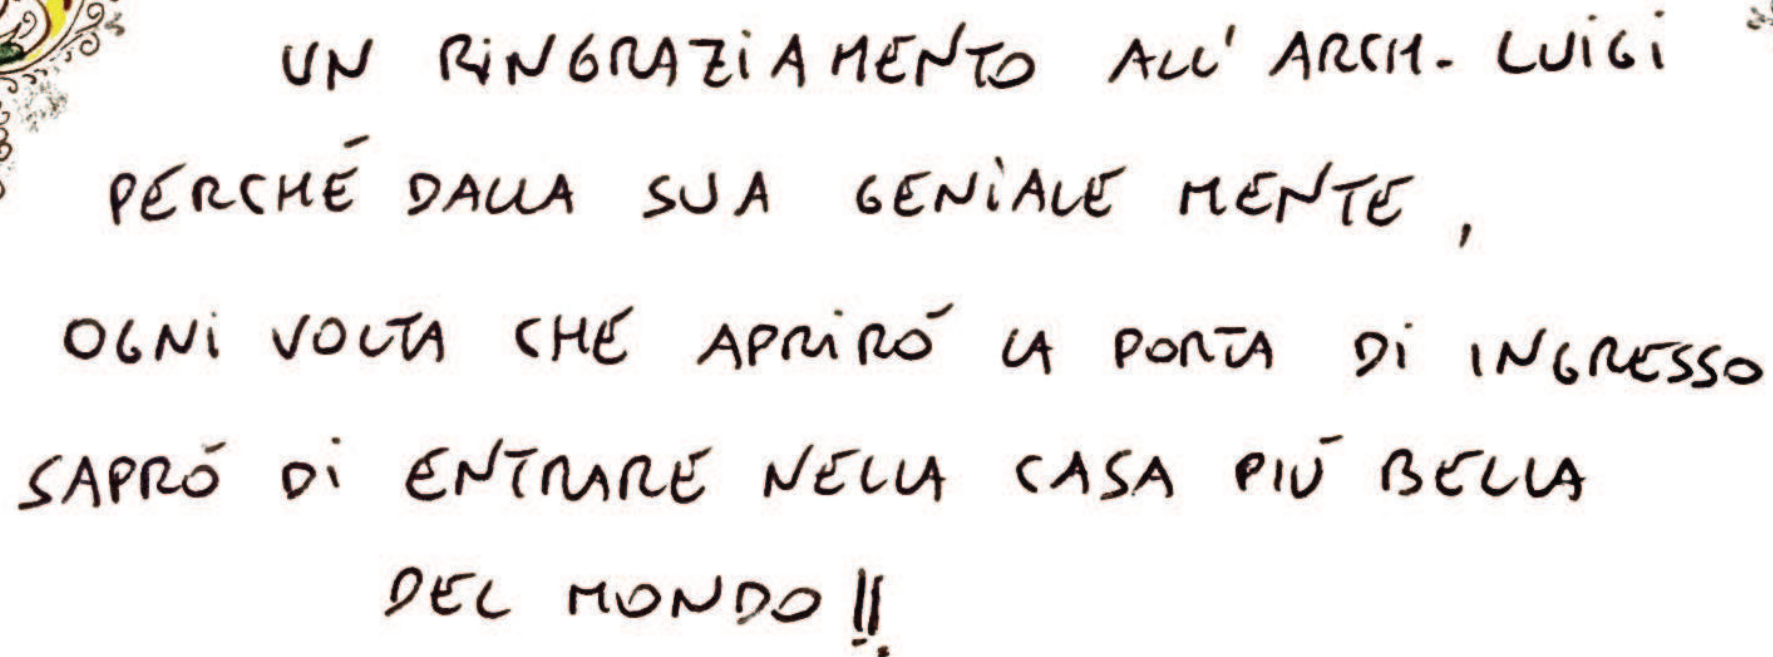 UN RINGRAZIAMENTO ALL' ARCH. LUIGI
PERCHÉ DALLA SUA GENIALE MENTE,
OGNI VOLTA CHE APRIRÓ LA PORTA DI INGRESSO
SAPRÓ DI ENTRARE NELLA CASA PIÚ BELLA
DEL MONDO!!